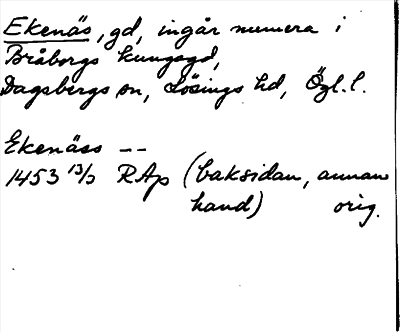 Ekenäs, gd, ingår numera i
Bråborgs kungsgd,
Dagsbergs sn, Lösings hd, Ögl. l.
Ekenäss --
1453 13/3 RAp (baksidan, annan
hand) orig.